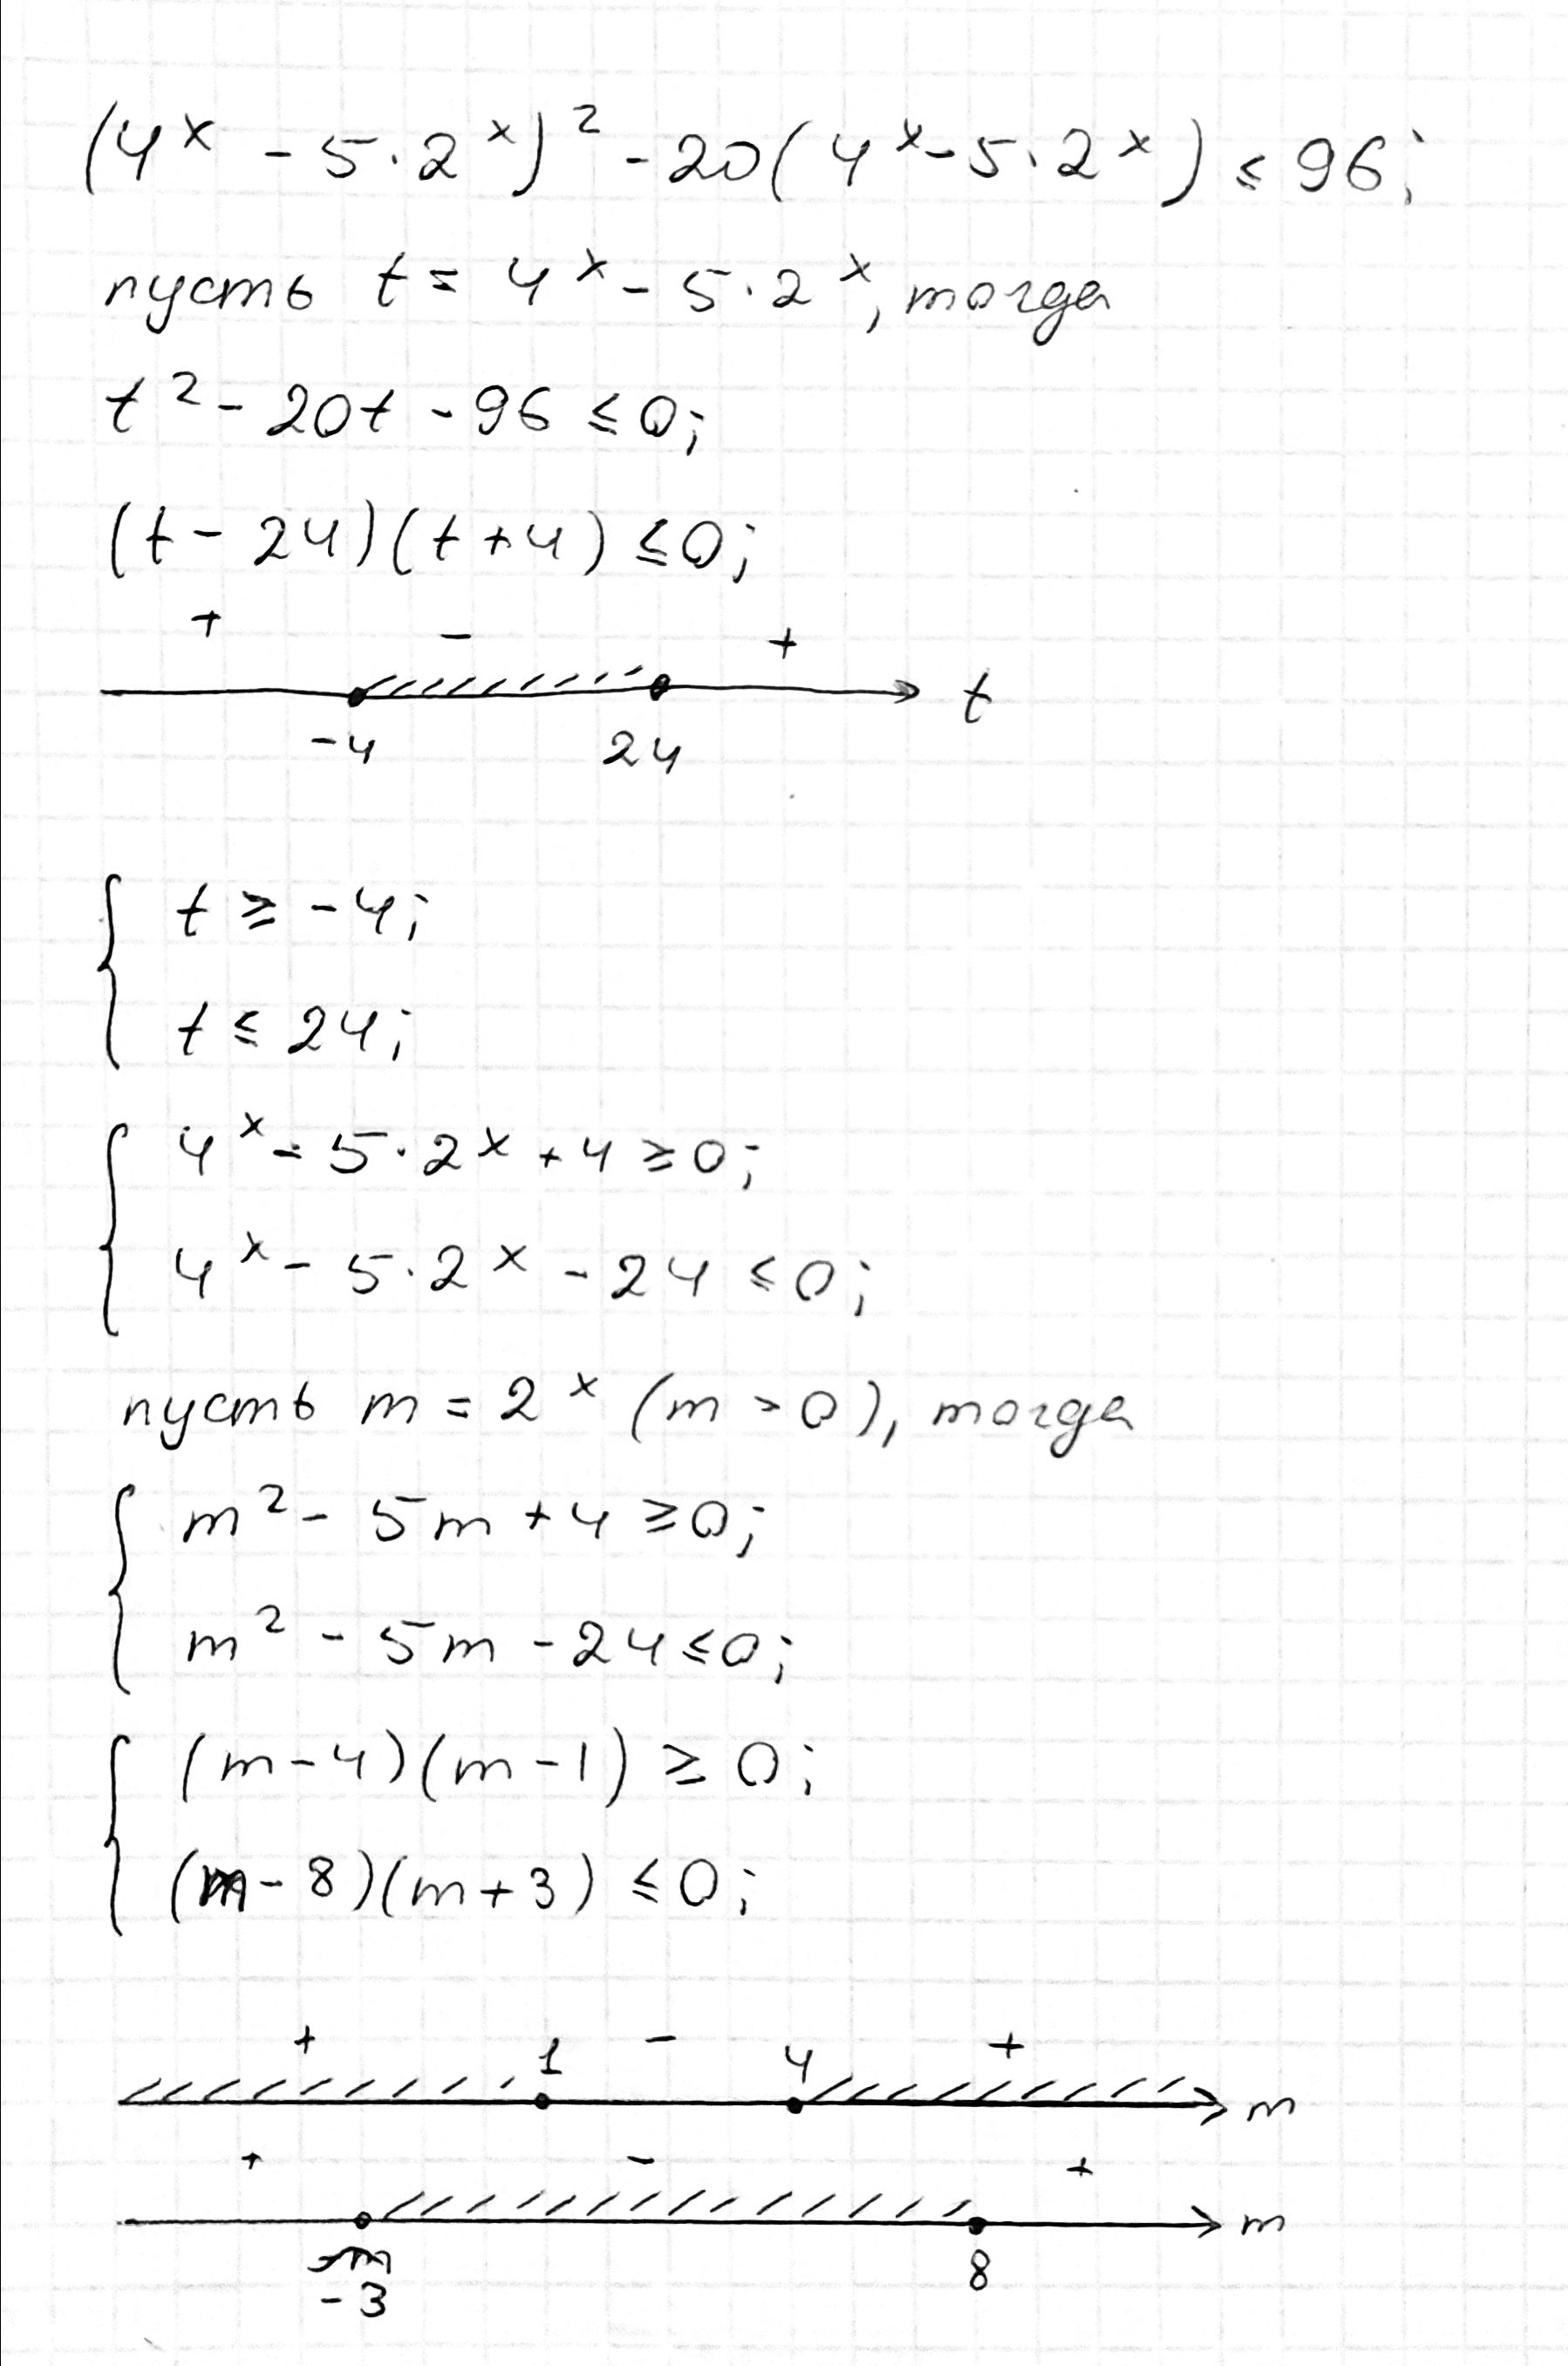 (4^x - 5·2^x)^2 - 20(4^x - 5·2^x) ≤ 96;
пусть t = 4^x - 5·2^x, тогда
t^2 - 20t - 96 ≤ 0;
(t - 24)(t + 4) ≤ 0;
+ - +
t
-4 24
t ≥ -4;
t ≤ 24;
4^x - 5·2^x + 4 ≥ 0;
4^x - 5·2^x - 24 ≤ 0;
пусть m = 2^x (m > 0), тогда
m^2 - 5m + 4 ≥ 0;
m^2 - 5m - 24 ≤ 0;
(m - 4)(m - 1) ≥ 0;
(m - 8)(m + 3) ≤ 0;
+ 1 - 4 +
m
+ - +
m
-3 8